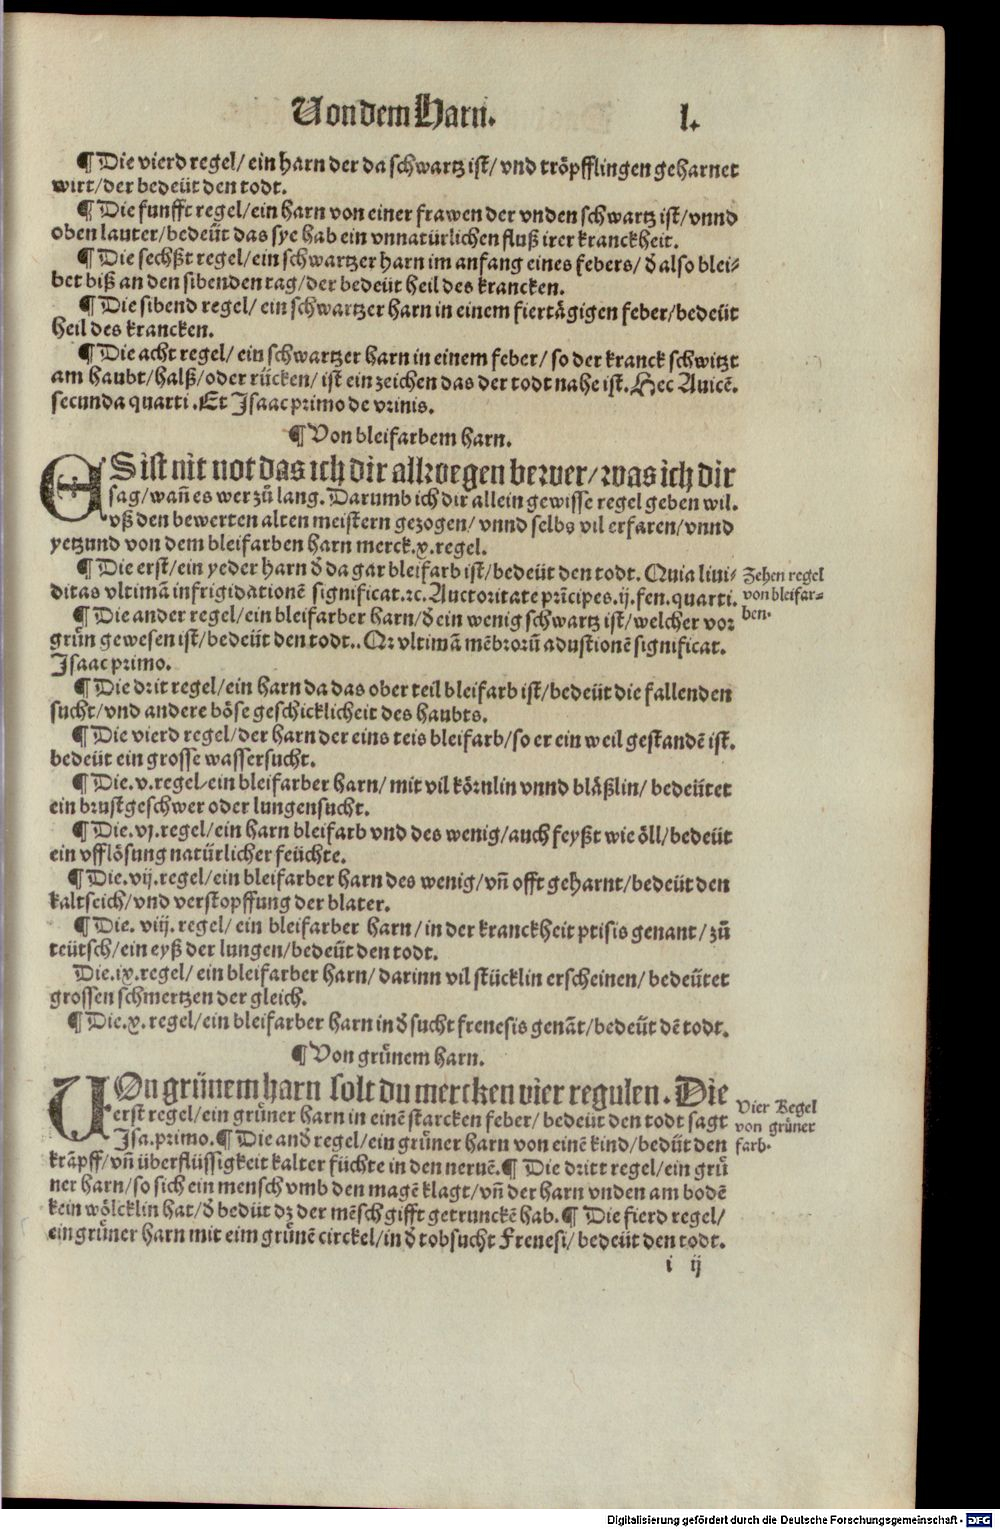 Von dem Harn. l.
¶ Die vierd regel/ ein harn der da schwartz ist/ vnd tröpfflingen geharnet
wirt/der bedeüt den todt.
¶ Die funfft regel/ein harn von einer frawen der vnden schwartz ist/vnnd
oben lauter/bedeüt das sye hab ein vnnatürlichen fluß irer kranckheit.
¶ Die sechßt regel/ein schwartzer harn im anfang eines febers/ d̄ also blei⸗
bet biß an den sibenden tag/der bedeüt heil des krancken.
¶ Die sibend regel/ ein schwartzer harn in einem fiertägigen feber/bedeüt
heil des krancken.
¶ Die acht regel/ ein schwartzer harn in einem feber/ so der kranck schwitzt
am haubt/halß/oder rücken/ ist ein zeichen das der todt nahe ist. Hec Auicē.
secunda quarti. Et Isaac primo de vrinis.
¶ Von bleifarbem harn.
ES ist nit not das ich dir allwegen bewer/was ich dir
sag/wañ es wer zů lang. Darumb ich dir allein gewisse regel geben wil.
vß den bewerten alten meistern gezogen/ vnnd selbs vil erfaren/vnnd
yetzund von dem bleifarben harn merck.x.regel.
¶ Die erst/ein yeder harn d̄ da gar bleifarb ist/bedeüt den todt. Quia liui⸗
ditas vltimā infrigidationē significat.⁊c. Auctoritate prīcipes.ij.fen.quarti.
Zehen regel
von bleifar⸗
ben.
¶ Die ander regel/ein bleifarber harn/d̄ ein wenig schwartz ist/welcher vor
grün gewesen ist/bedeüt den todt.. Qr vltimā mēbrorū adustionē significat.
Isaac primo.
¶ Die drit regel/ein harn da das ober teil bleifarb ist/bedeüt die fallenden
sucht/vnd andere böse geschicklicheit des haubts.
¶ Die vierd regel/der harn der eins teis bleifarb/so er ein weil gestandē ist.
bedeüt ein grosse wassersucht.
¶ Die.v.regel/ein bleifarber harn/ mit vil körnlin vnnd bläßlin/ bedeütet
ein brustgeschwer oder lungensucht.
¶ Die.vj.regel/ein harn bleifarb vnd des wenig/auch feyßt wie öll/bedeüt
ein vfflösung natürlicher feüchte.
¶ Die.vij.regel/ein bleifarber harn des wenig/vñ offt geharnt/bedeüt den
kaltseich/vnd verstopffung der blater.
¶ Die. viij. regel/ ein bleifarber harn/in der kranckheit ptisis genant/zů
teütsch/ein eyß der lungen/bedeüt den todt.
Die.ix.regel/ein bleifarber harn/ darinn vil stücklin erscheinen/bedeütet
grossen schmertzen der gleich.
¶ Die.x. regel/ein bleifarber harn in d̄ sucht frenesis genāt/bedeüt dē todt.
¶ Von grünem harn.
VOn grünem harn solt du mercken vier regulen. Die
erst regel/ein grüner harn in einē starcken feber/ bedeüt den todt sagt
Isa.primo. ¶ Die and̄ regel/ein grüner harn von einē kind/bedüt den
Vier Regel
von grüner
farb.
krāpff/vñ überflüssigkeit kalter füchte in den neruē. ¶ Die dritt regel/ein grü
ner harn/so sich ein mensch vmb den magē klagt/vñ der harn vnden am bodē
kein wölcklin hat/d̄ bedüt dz der mēsch gifft getrunckē hab. ¶ Die fierd regel/
ein grüner harn mit eim grünē circkel/in d̄ tobsucht Frenesi/bedeüt den todt.
i ij
Digitalisierung gefördert durch die Deutsche Forschungsgemeinschaft - DFG